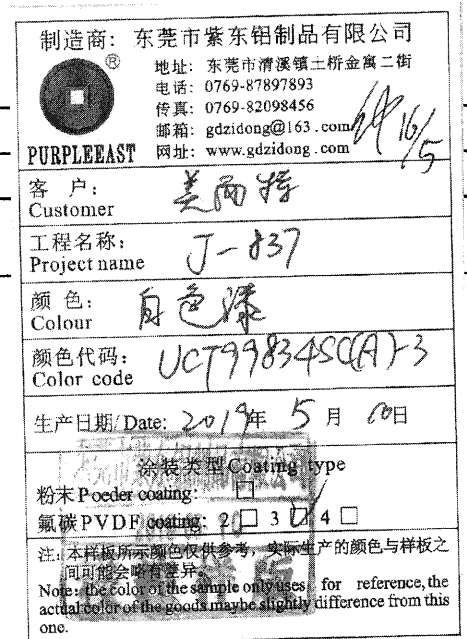 制造商：东莞市紫东铝制品有限公司
®
地址：东莞市清溪镇土桥金寓二街
电话：0769-87897893
传真：0769-82098456
邮箱：gdzidong@163.com
网址：www.gdzidong.com
16/5
PURPLEEAST
客 户：美而特
Customer
工程名称：J-837
Project name
颜 色：白色漆
Colour
颜色代码：UCT99834SC(A)-3
Color code
生产日期/Date: 2019年 5月 10日
涂装类型Coating type
粉末Poeder coating: □
氟碳PVDF coating: 2 □ 3 ☑ 4 □
注：本样板所示颜色仅供参考，实际生产的颜色与样板之
间可能会略有差异。
Note: the color of the sample only uses for reference, the
actual color of the goods maybe slightly difference from this
one.